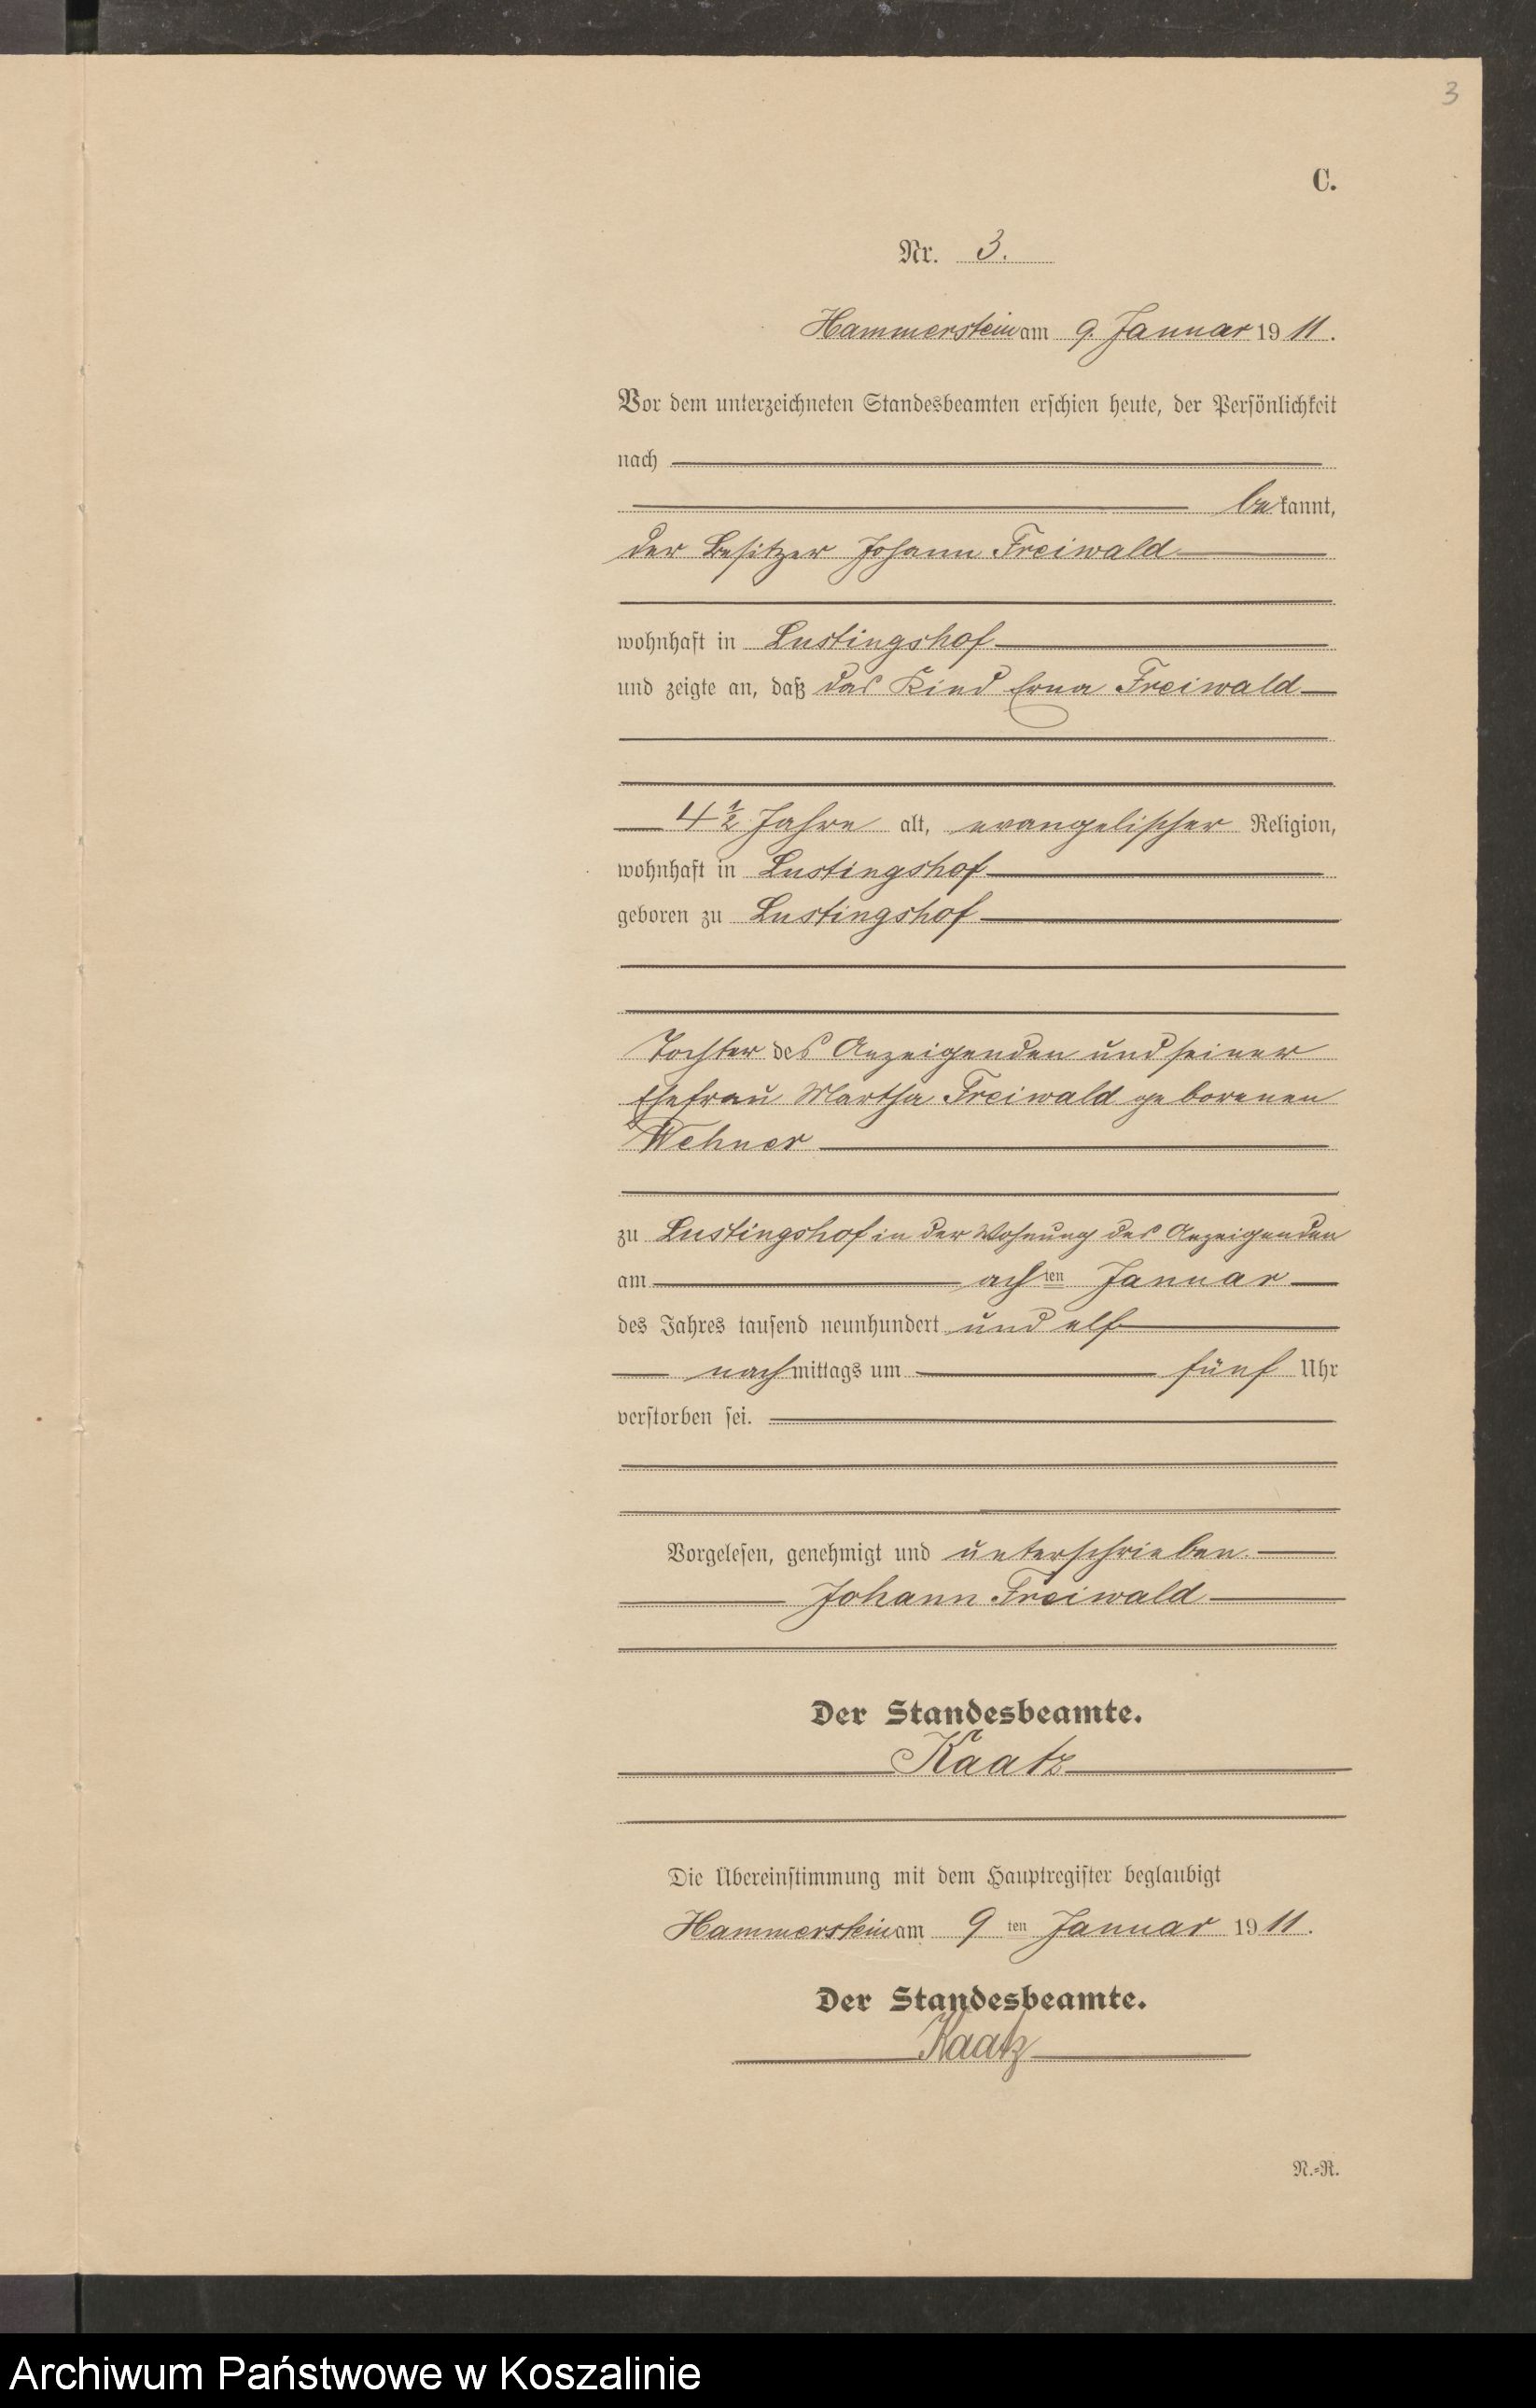 3
C.
Nr. 3.
Hammerstein am 9. Januar 1911.
Vor dem unterzeichneten Standesbeamten erschien heute, der Persönlichkeit
nach
bekannt,
der Besitzer Johann Freiwald
wohnhaft in Lustingshof
und zeigte an, daß das Kind Erna Freiwald
4 1/2 Jahre alt, evangelischer Religion,
wohnhaft in Lustingshof
geboren zu Lustingshof
Tochter des Anzeigenden und seiner
Ehefrau Martha Freiwald geborenen
Wehner
zu Lustingshof in der Wohnung des Anzeigenden
am achten Januar
des Jahres tausend neunhundert und elf
nachmittags um fünf Uhr
verstorben sei.
Vorgelesen, genehmigt und unterschrieben.
Johann Freiwald
Der Standesbeamte.
Kaatz
Die Übereinstimmung mit dem Hauptregister beglaubigt
Hammerstein am 9ten Januar 1911.
Der Standesbeamte.
Kaatz
N.=R.
Archiwum Państwowe w Koszalinie